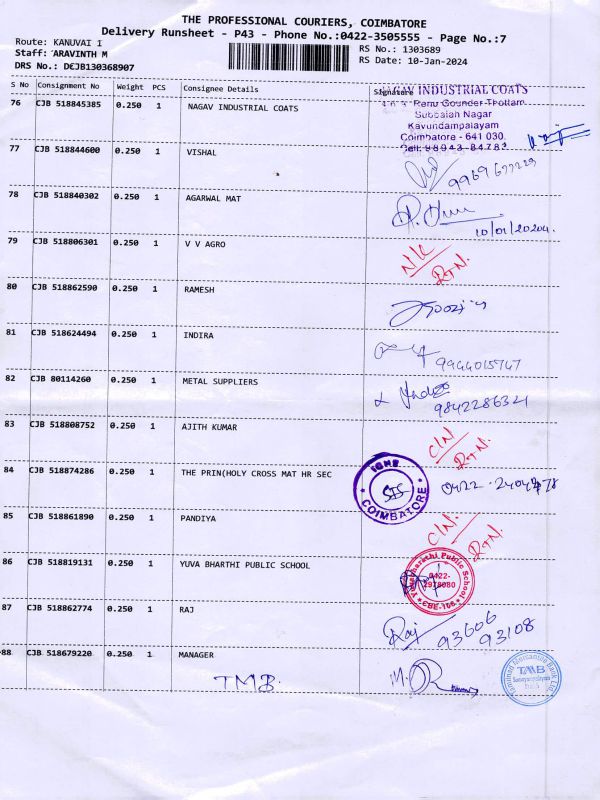 THE PROFESSIONAL COURIERS, COIMBATORE
Delivery Runsheet - P43 - Phone No.:0422-3505555 - Page No.:7
Route: KANUVAI I
RS No.: 1303689
Staff: ARAVINTH M
RS Date: 10-Jan-2024
DRS No.: DCJB130368907
S No Consignment No Weight PCS Consignee Details Signature
76 CJB 518845385 0.250 1 NAGAV INDUSTRIAL COATS
NAGAV INDUSTRIAL COATS
Ranu Gounder Thottam
Subbaiah Nagar
Kavundampalayam
Coimbatore - 641 030.
Cell: 98943 84783
77 CJB 518844600 0.250 1 VISHAL
78 CJB 518840302 0.250 1 AGARWAL MAT
10/01/2024.
79 CJB 518806301 0.250 1 V V AGRO
N/C
RTN.
80 CJB 518862590 0.250 1 RAMESH
81 CJB 518624494 0.250 1 INDIRA
9944015747
82 CJB 80114260 0.250 1 METAL SUPPLIERS
9842286321
83 CJB 518808752 0.250 1 AJITH KUMAR
C/N
RTN.
84 CJB 518874286 0.250 1 THE PRIN(HOLY CROSS MAT HR SEC
COIMBATORE
85 CJB 518861890 0.250 1 PANDIYA
C/N.
RTN.
86 CJB 518819131 0.250 1 YUVA BHARTHI PUBLIC SCHOOL
Yuvabharathi Public School
0422-
2918080
CBE-108
87 CJB 518862774 0.250 1 RAJ
Raj 93606
93108
88 CJB 518679220 0.250 1 MANAGER
TMB
Tamilnad Mercantile Bank Ltd
TMB